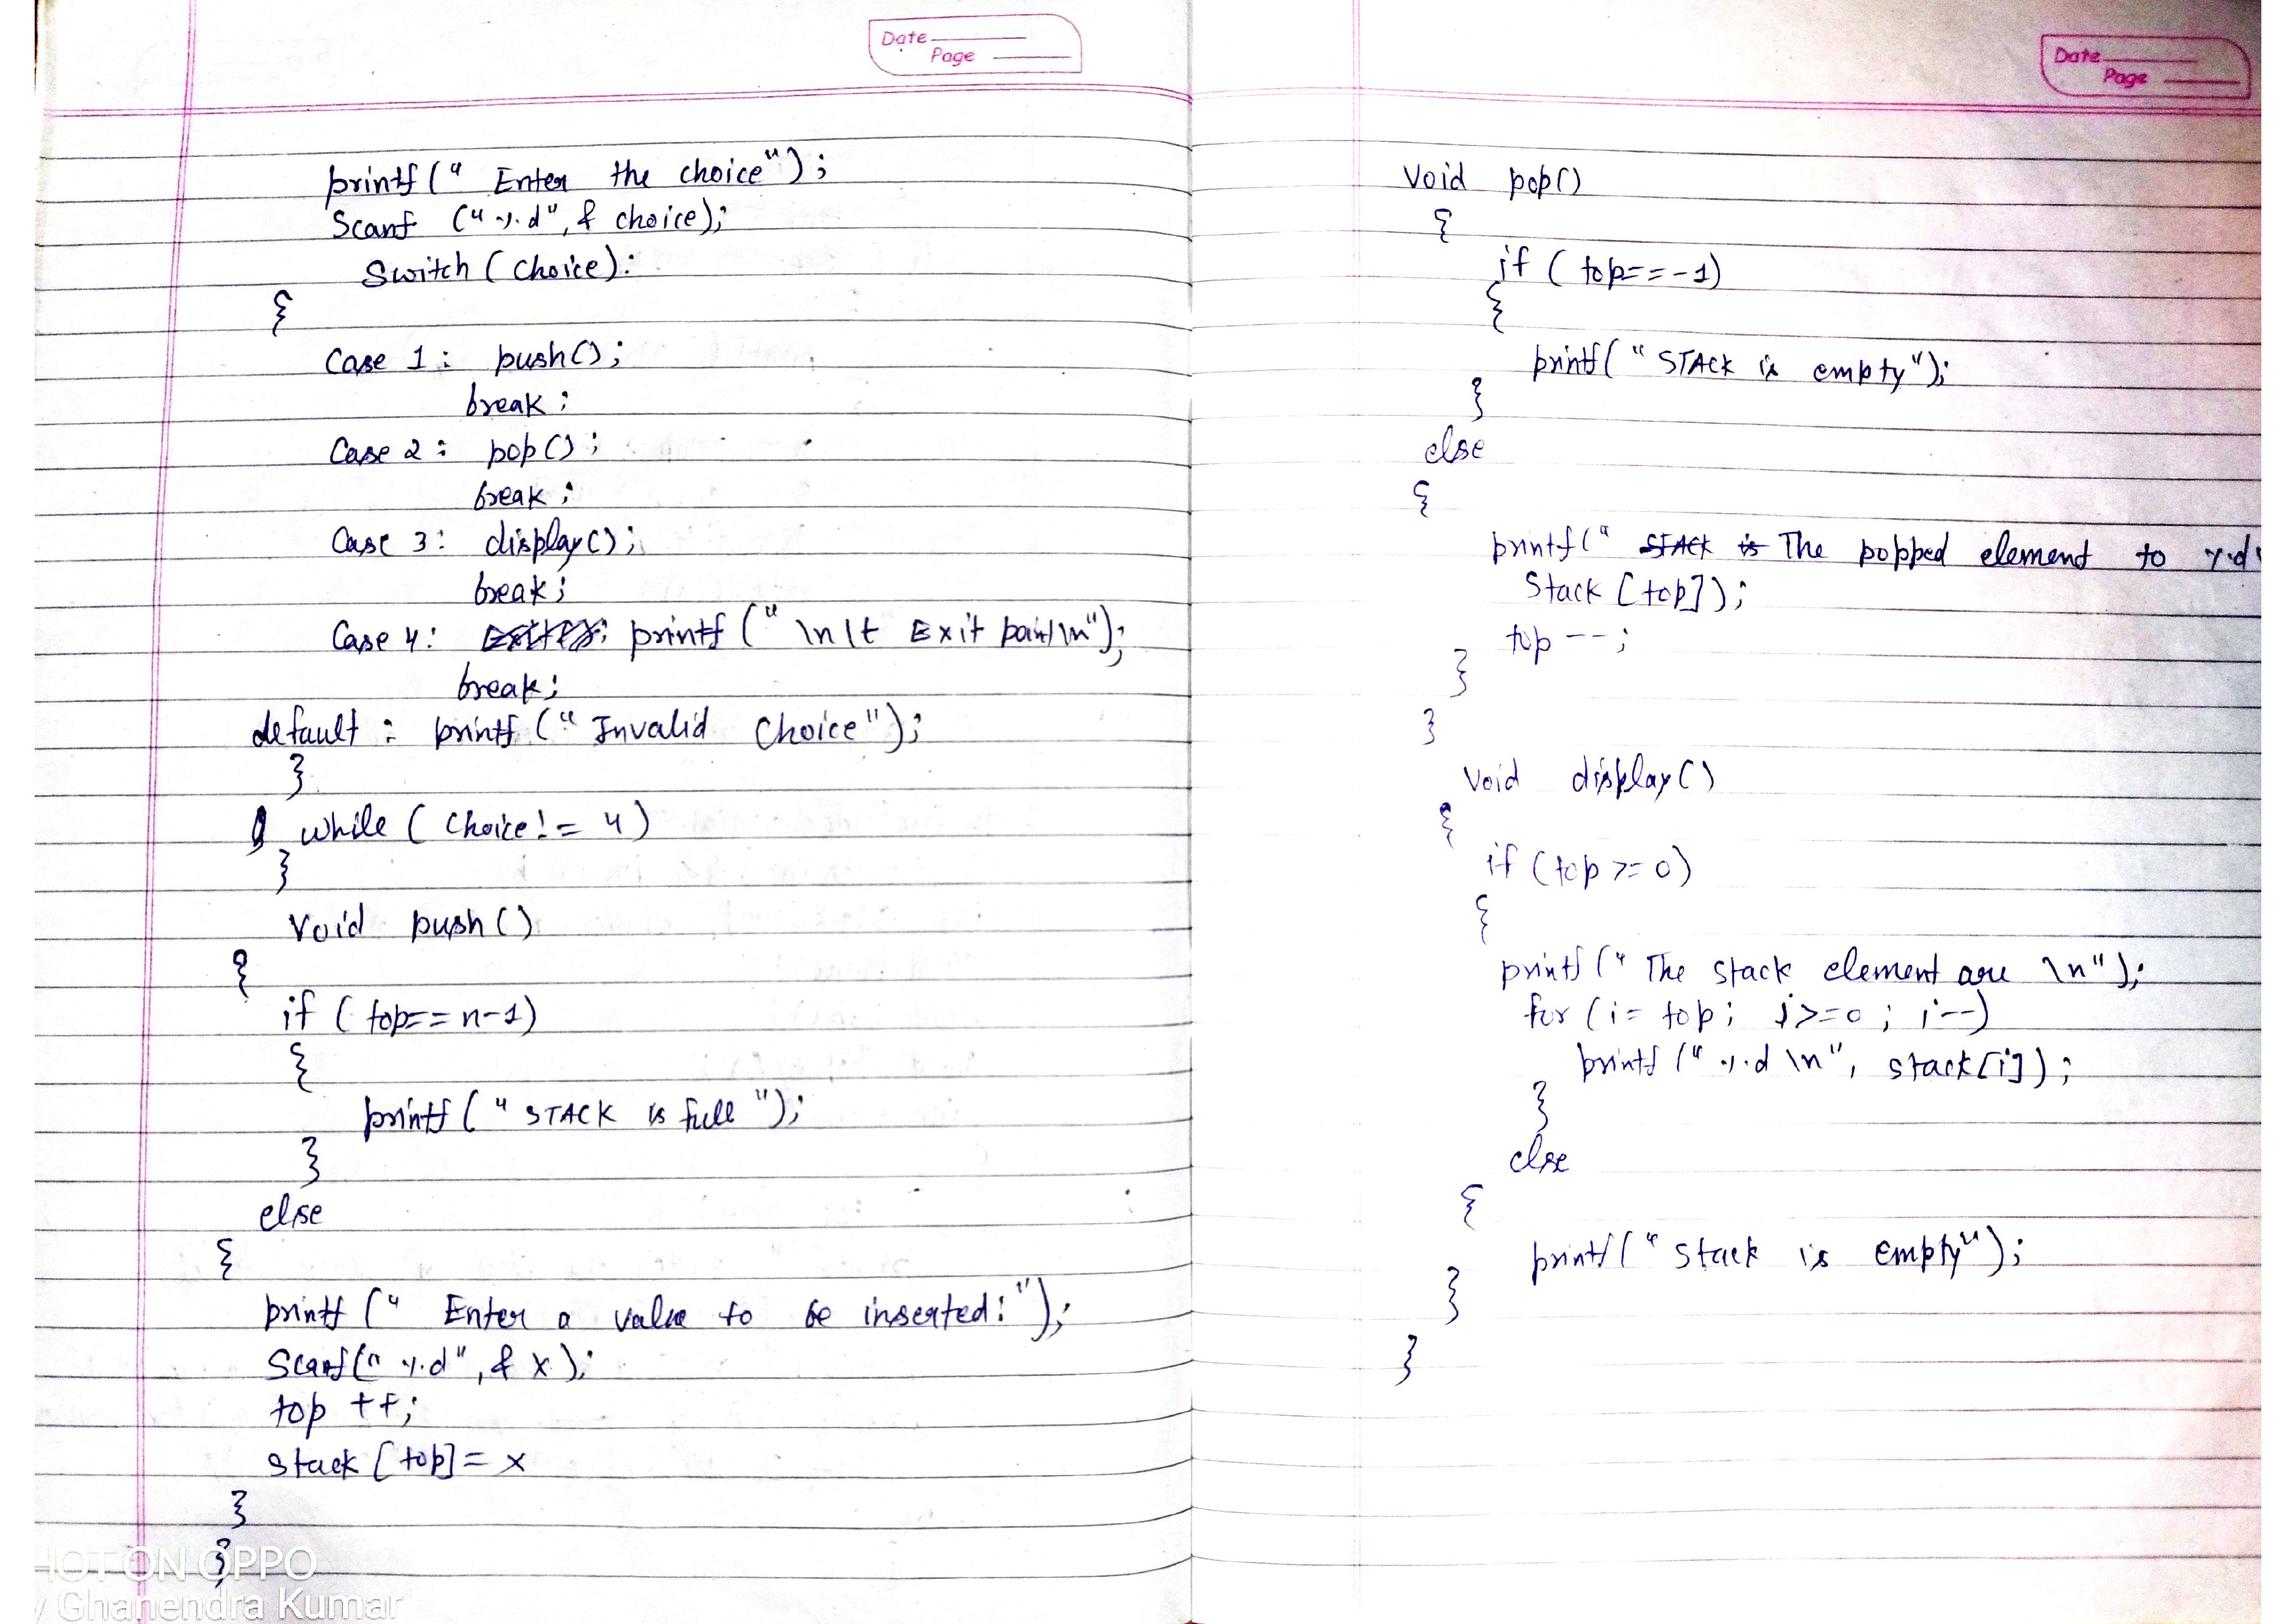 Date
Page
printf(" Enter the choice");
Scanf ("%d", & choice);
Switch (choice):
{
Case 1: push();
break;
Case 2: pop();
break;
Case 3: display();
break;
Case 4: printf (" \n\t Exit point\n");
break;
default: printf ("Invalid Choice");
}
while ( choice! = 4)
}
Void push()
{
if ( top== n-1)
{
printf ( " STACK is full ");
}
else
{
printf (" Enter a value to be inserted:");
Scanf(" %d", & x);
top ++;
stack [top]= x
}
}
SHOT ON OPPO
Ghanendra Kumar
Date
Page
Void pop()
{
if ( top==-1)
{
printf( " STACK is empty");
}
else
{
printf(" STACK is The popped element to %d"
Stack [top]);
top --;
}
}
Void display()
{
if (top >= 0)
{
printf (" The stack element are \n");
for (i= top; i>=0; i--)
printf (" %d \n", stack[i]);
}
else
{
printf(" Stack is empty");
}
}